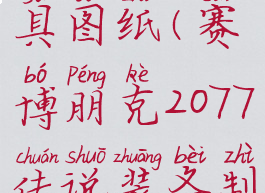 具图纸(赛
bó Péng kè
博朋克2077
chuán shuō zhuāng bèi zhì
传说装备制